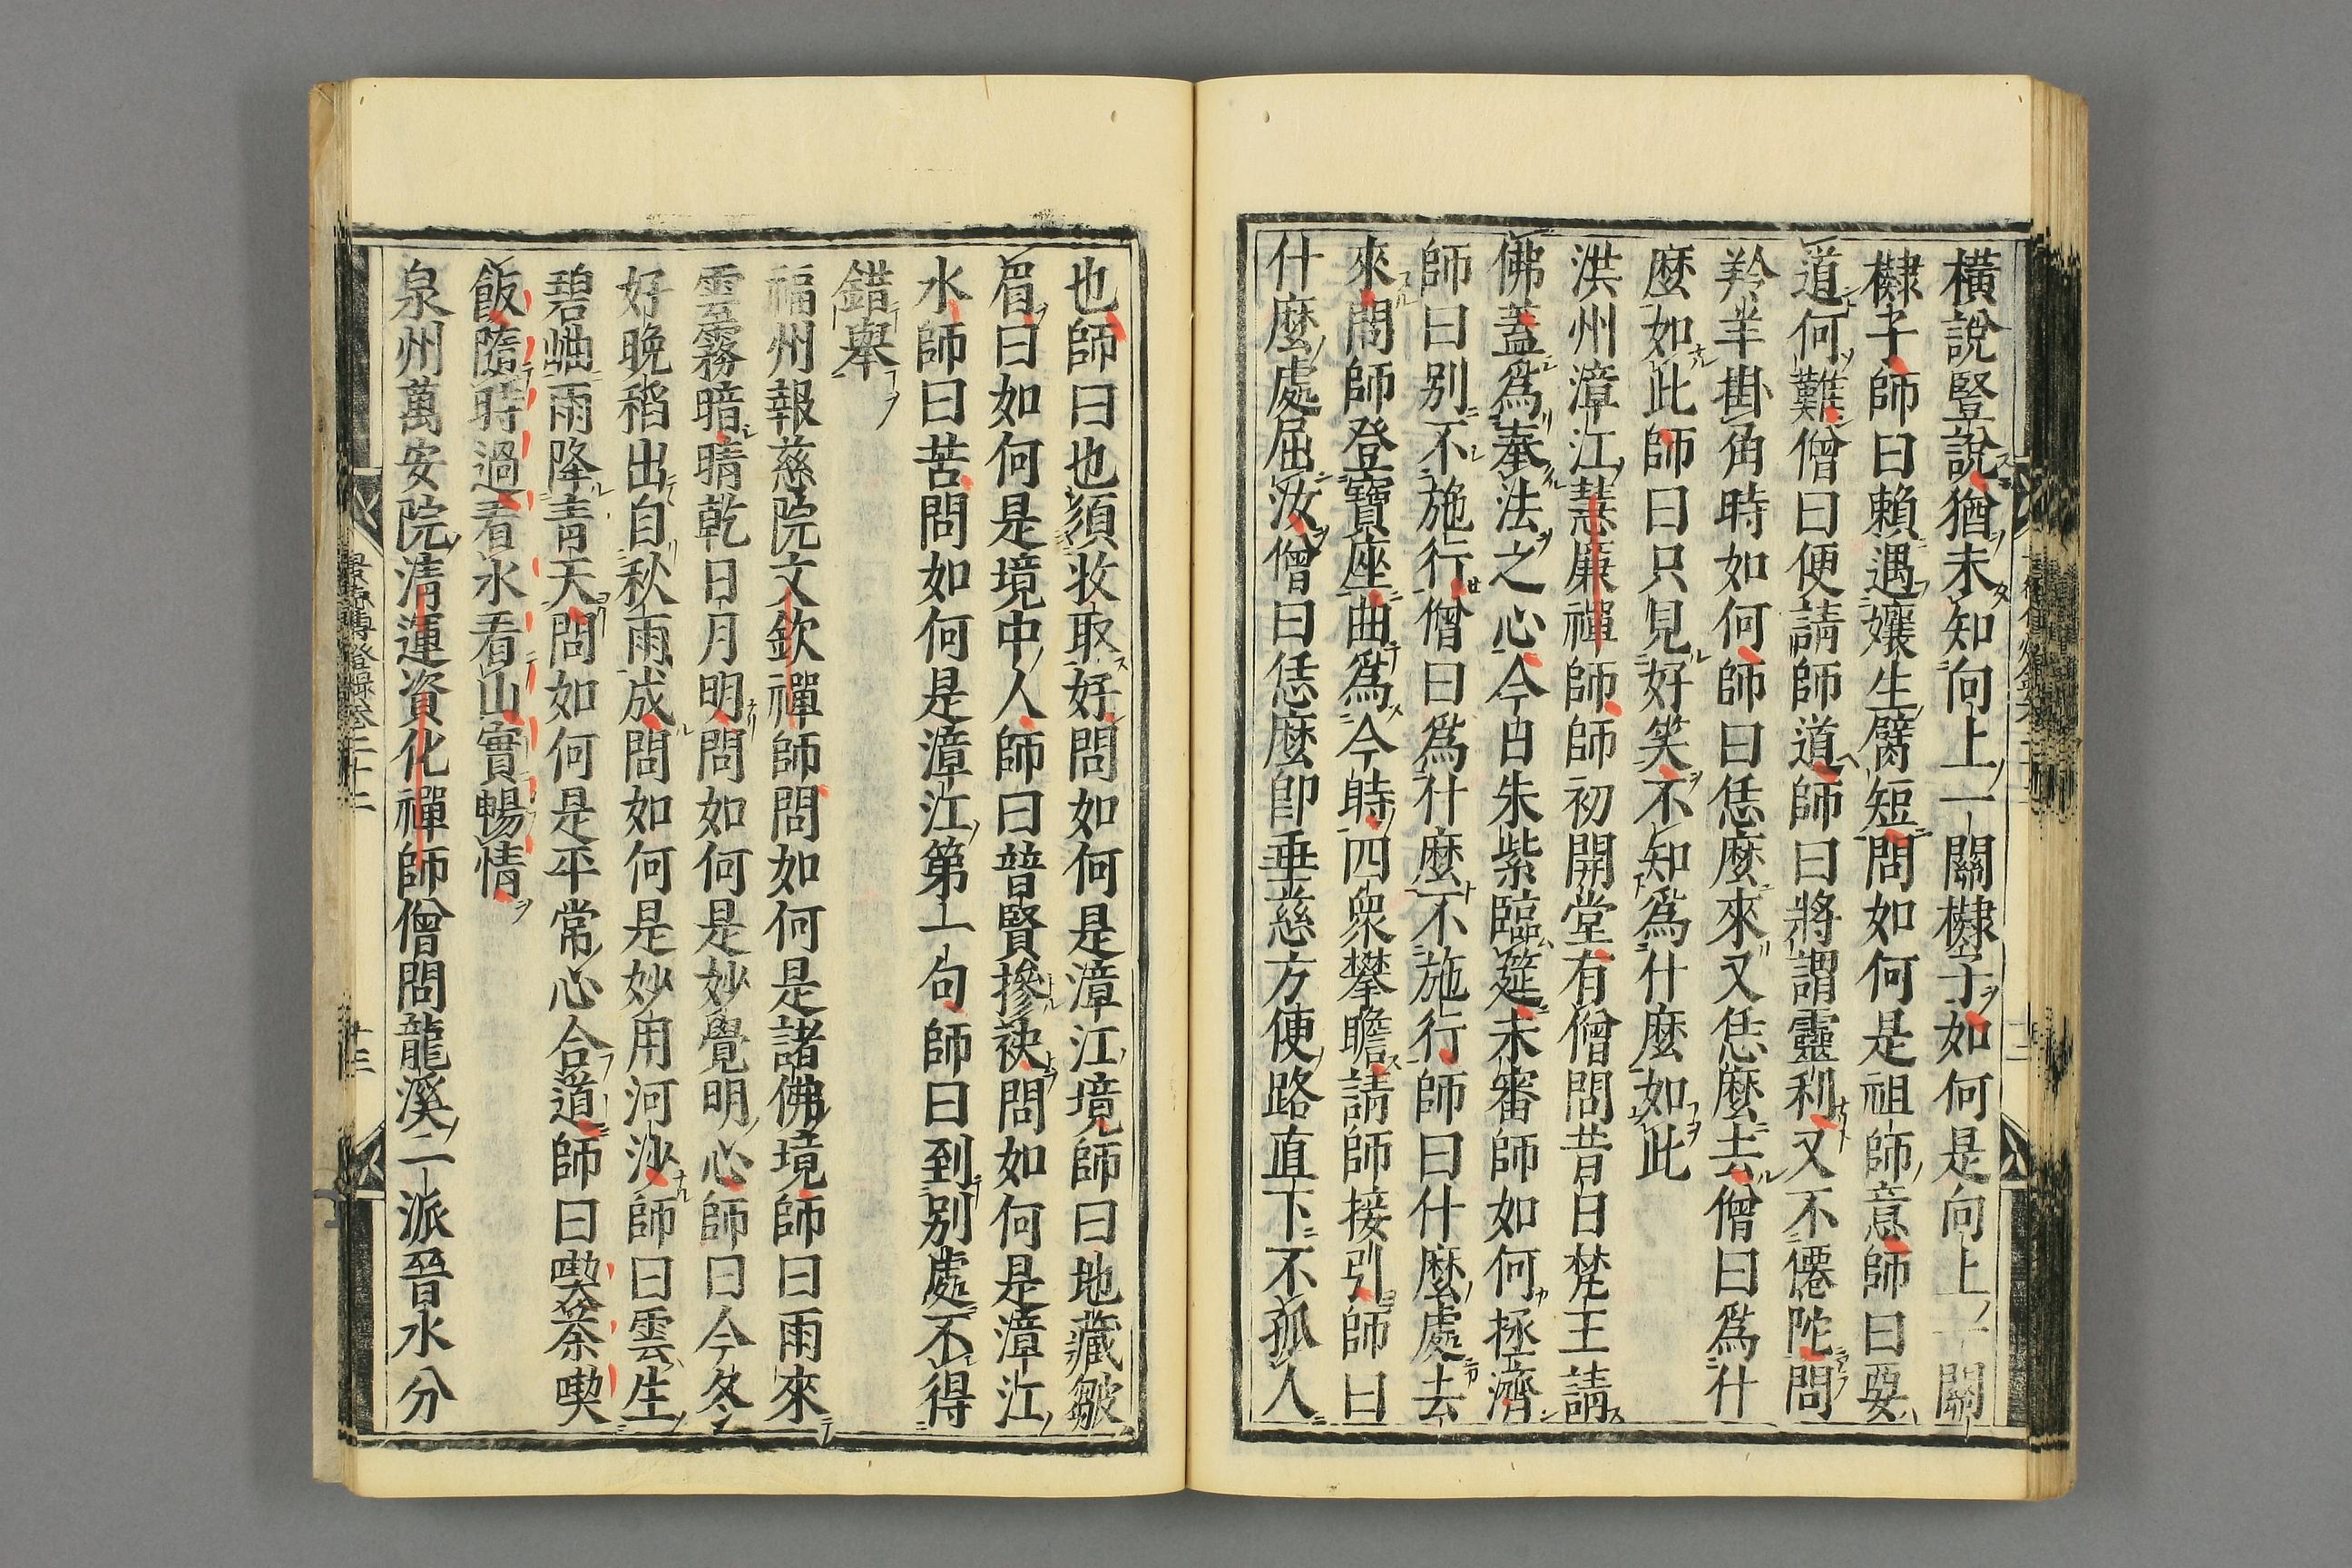 橫說豎說猶未知向上一關棙子如何是向上一關
棙子師曰賴遇孃生臂短問如何是祖師意師曰要
道何難僧曰便請師道師曰將謂靈利又不僊陀問
羚羊掛角時如何師曰恁麼來又恁麼去僧曰爲什
麼如此師曰只見好笑不知爲什麼如此
洪州漳江慧廉禪師師初開堂有僧問昔日梵王請
佛蓋爲奉法之心今日朱紫臨筵未審師如何拯濟
師曰别不施行僧曰爲什麼不施行師曰什麼處去
來問師登寶座曲爲今時四衆攀瞻請師接引師曰
什麼處屈汝僧曰恁麼卽垂慈方便路直下不孤人
也師曰也須收取好問如何是漳江境師曰地藏皺
眉曰如何是境中人師曰普賢摻袂問如何是漳江
水師曰苦問如何是漳江第一句師曰到别處不得
錯舉
福州報慈院文欽禪師問如何是諸佛境師曰雨來
雲霧暗晴乾日月明問如何是妙覺明心師曰今冬
好晚稻出自秋雨成問如何是妙用河沙師曰雲生
碧岫雨降靑天問如何是平常心合道師曰喫茶喫
飯隨時過看水看山實暢情
泉州萬安院清運資化禪師僧問龍溪一派晉水分
景德傳燈錄卷二十二
廿三